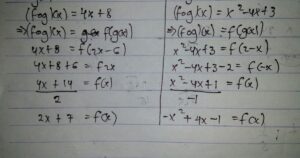 (fog)(x) = 4x + 8
⇒(fog)(x) = f(g(x))
4x + 8 = f(2x - 6)
4x + 8 + 6 = f2x
4x + 14 = f(x)
2
2x + 7 = f(x)
(fog)(x) = x² - 4x + 3
⇒(fog)(x) = f(g(x))
x² - 4x + 3 = f(2 - x)
x² - 4x + 3 - 2 = f(-x)
x² - 4x + 1 = f(x)
-1
-x² + 4x - 1 = f(x)